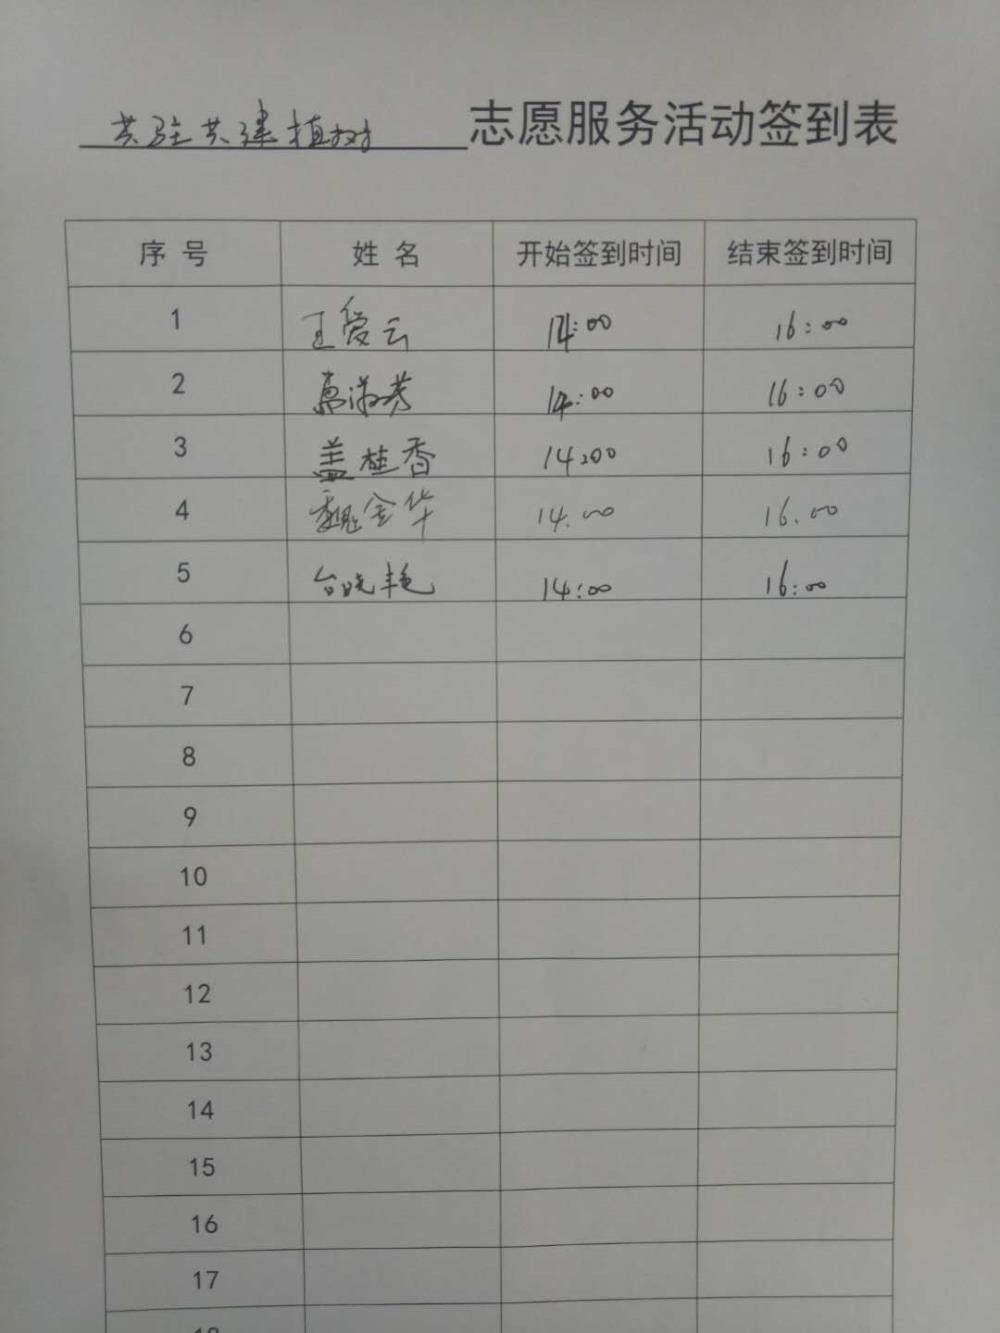 共驻共建植树 志愿服务活动签到表
序号 姓名 开始签到时间 结束签到时间
1 王爱云 14:00 16:00
2 葛淑芳 14:00 16:00
3 盖桂香 14:00 16:00
4 魏金华 14.00 16.00
5 台晓艳 14:00 16:00
6
7
8
9
10
11
12
13
14
15
16
17